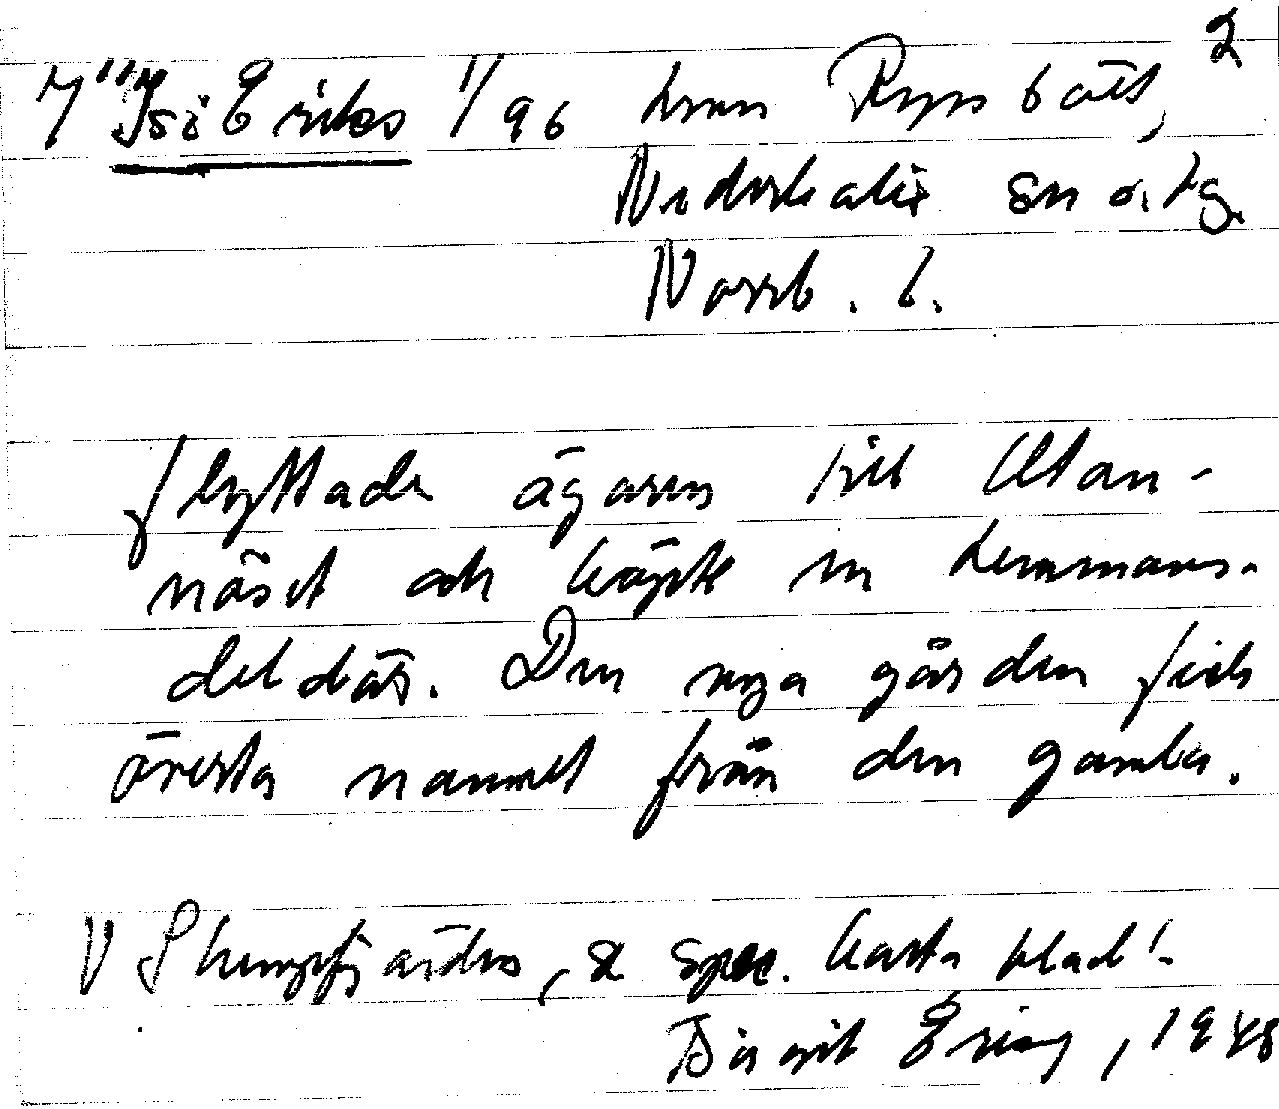 2
Isö Eriks 1/96 hmn Ryssbält,
Nederkalix sn o. tg.
Norrb. l.
flyttade ägaren till Utan-
näset och köpte en hemmans-
del där. Den nya gården fick
överta namnet från den gamla.
V fjärden, se spec. karta blad 1.
Birgit Ering, 1948